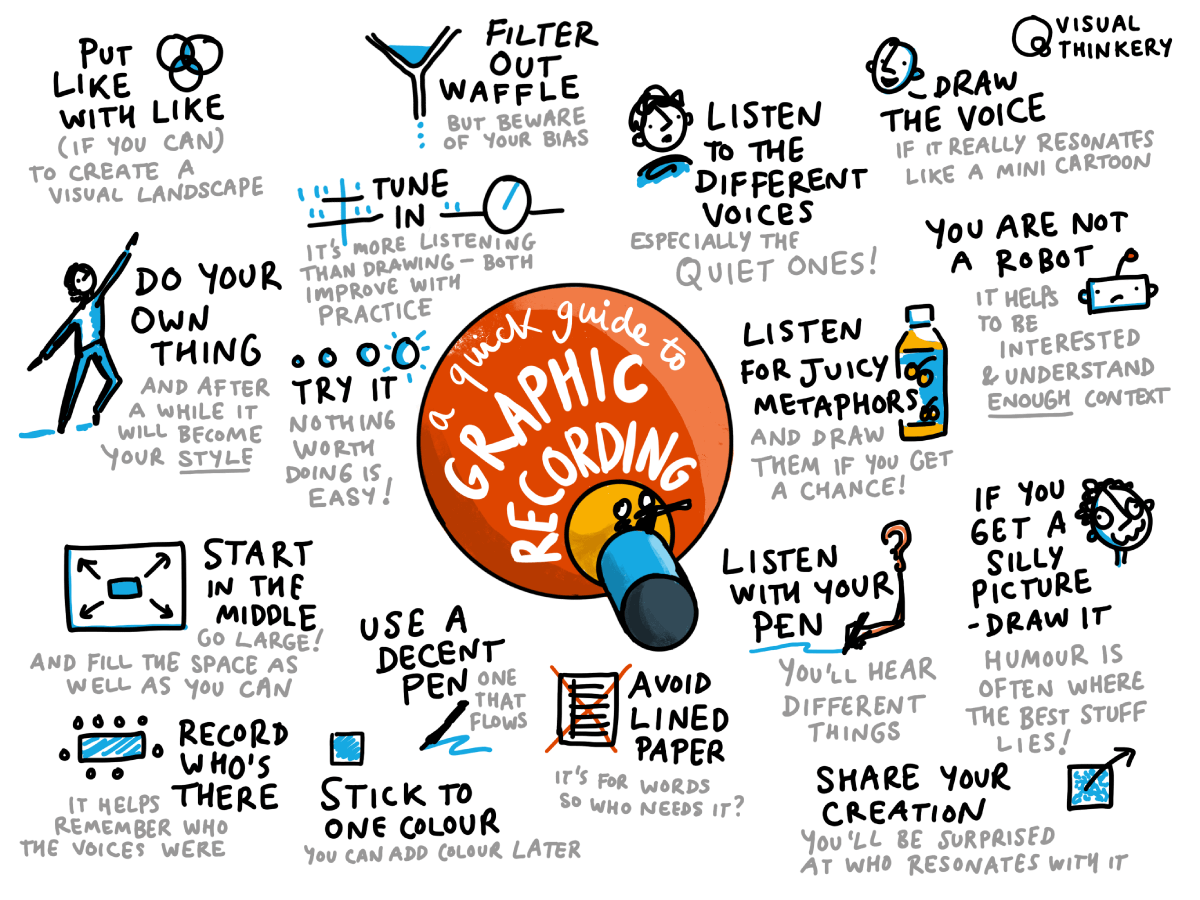 PUT
LIKE
WITH LIKE
(IF YOU CAN)
TO CREATE A
VISUAL LANDSCAPE
FILTER
OUT
WAFFLE
BUT BEWARE
OF YOUR BIAS
LISTEN
TO THE
DIFFERENT
VOICES
ESPECIALLY THE
QUIET ONES!
VISUAL
THINKERY
DRAW
THE VOICE
IF IT REALLY RESONATES
LIKE A MINI CARTOON
TUNE
IN
IT'S MORE LISTENING
THAN DRAWING – BOTH
IMPROVE WITH
PRACTICE
YOU ARE NOT
A ROBOT
IT HELPS
TO BE
INTERESTED
& UNDERSTAND
ENOUGH CONTEXT
DO YOUR
OWN
THING
AND AFTER
A WHILE IT
WILL BECOME
YOUR STYLE
TRY IT
NOTHING
WORTH
DOING IS
EASY!
a quick guide to
GRAPHIC
RECORDING
LISTEN
FOR JUICY
METAPHORS
AND DRAW
THEM IF YOU GET
A CHANCE!
START
IN THE
MIDDLE
GO LARGE!
AND FILL THE SPACE AS
WELL AS YOU CAN
USE A
DECENT
PEN
ONE
THAT
FLOWS
LISTEN
WITH YOUR
PEN
YOU'LL HEAR
DIFFERENT
THINGS
IF YOU
GET A
SILLY
PICTURE
-DRAW IT
HUMOUR IS
OFTEN WHERE
THE BEST STUFF
LIES!
RECORD
WHO'S
THERE
IT HELPS
REMEMBER WHO
THE VOICES WERE
STICK TO
ONE COLOUR
YOU CAN ADD COLOUR LATER
AVOID
LINED
PAPER
IT'S FOR WORDS
SO WHO NEEDS IT?
SHARE YOUR
CREATION
YOU'LL BE SURPRISED
AT WHO RESONATES WITH IT